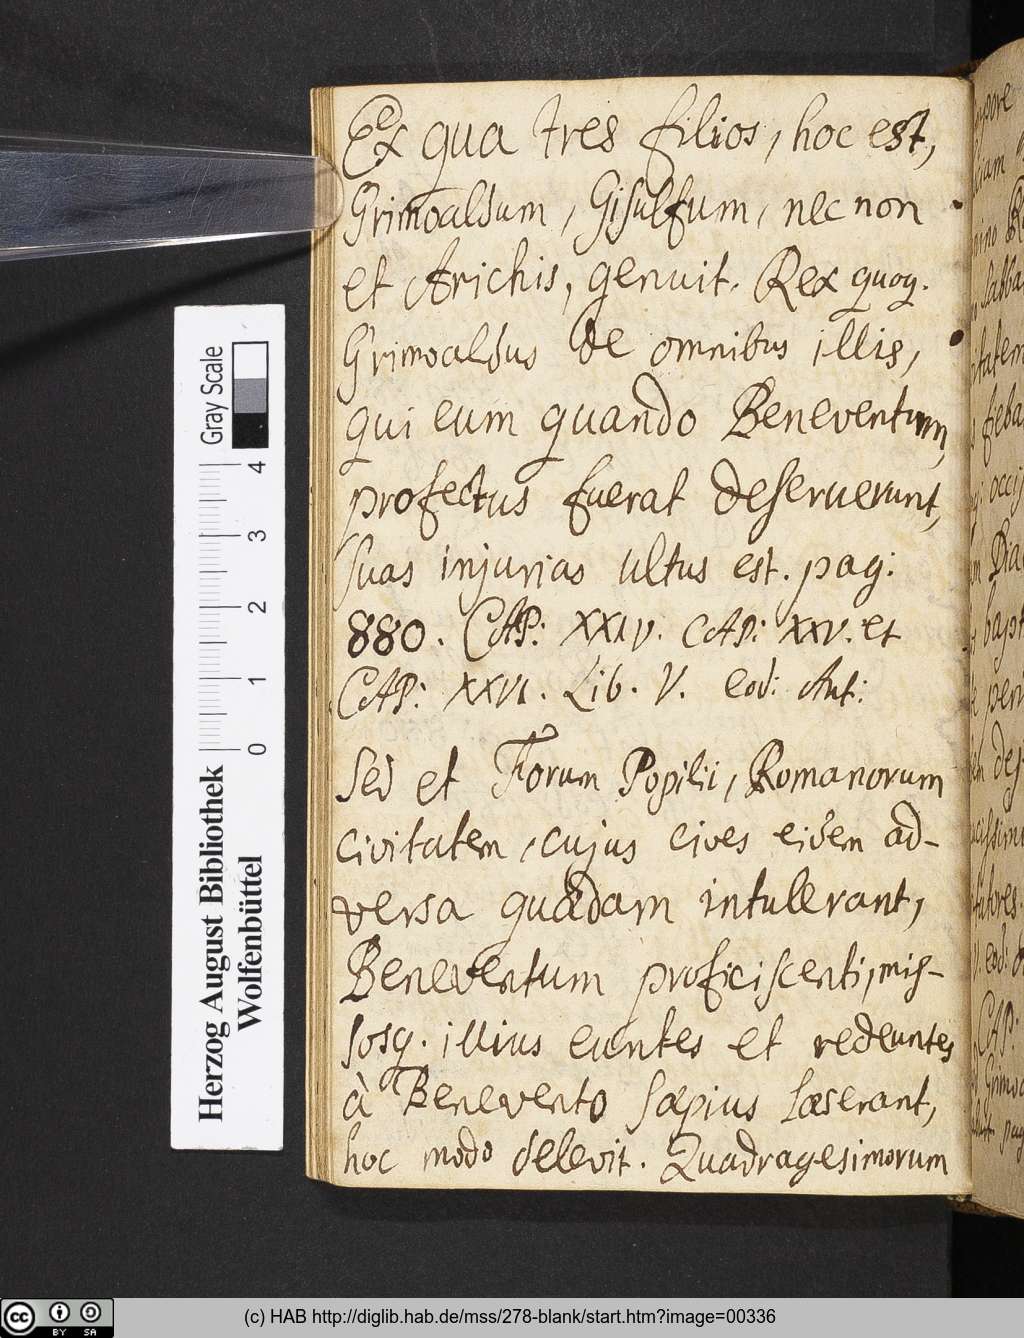 Ex qua tres filios, hoc est,
Grimoaldum, Gisulfum, nec non
et Arichis, genuit. Rex quoq.
Grimoaldus de omnibus illis,
qui eum quando Beneventum,
profectus fuerat deseruerunt,
suas injurias ultus est. pag:
880. CAP: XXIV. CAP: XXV. et
CAP: XXVI. Lib. V. eod: Aut:
Sed et Forum Popilii, Romanorum
civitatem, cujus cives eidem ad-
versa quædam intulerant,
Beneventum proficiscenti, mis-
sosq. illius euntes et redeuntes
à Benevento sæpius læserant,
hoc modo delevit. Quadragesimorum
Gray Scale
4
3
2
1
0
Herzog August Bibliothek
Wolfenbüttel
cc BY SA
(c) HAB http://diglib.hab.de/mss/278-blank/start.htm?image=00336